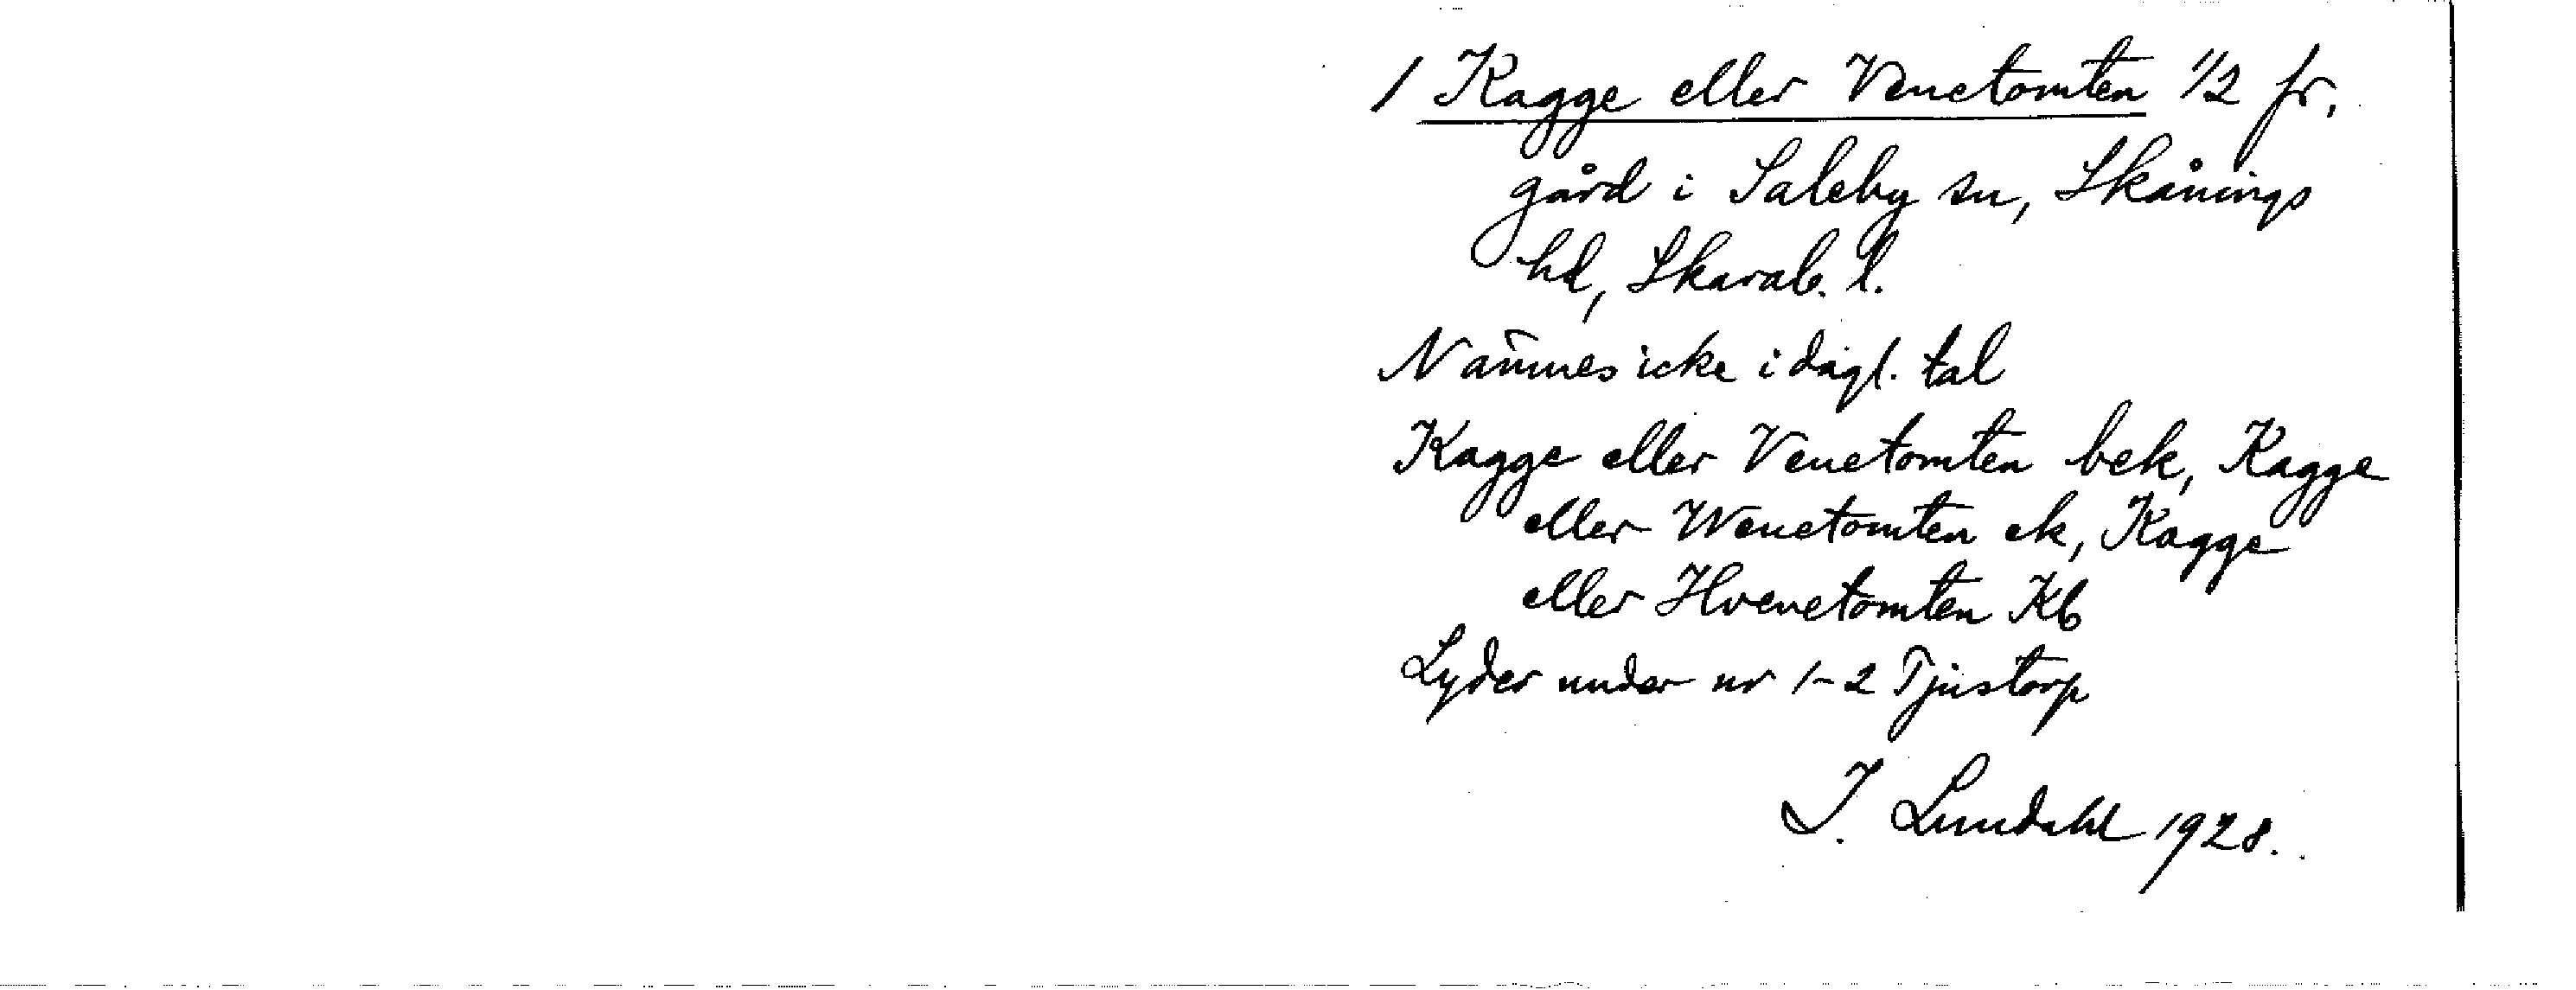 1 Kagge eller Venetomten 1/2 fr,
gård i Saleby sn, Skånings
hd, Skarab. l.
Nämnes icke i dagl. tal
Kagge eller Venetomten bek, Kagge
eller Wenetomten ek, Kagge
eller Hvenetomten Kb
Lyder under nr 1-2 Tjustorp
I. Lundahl 1928.